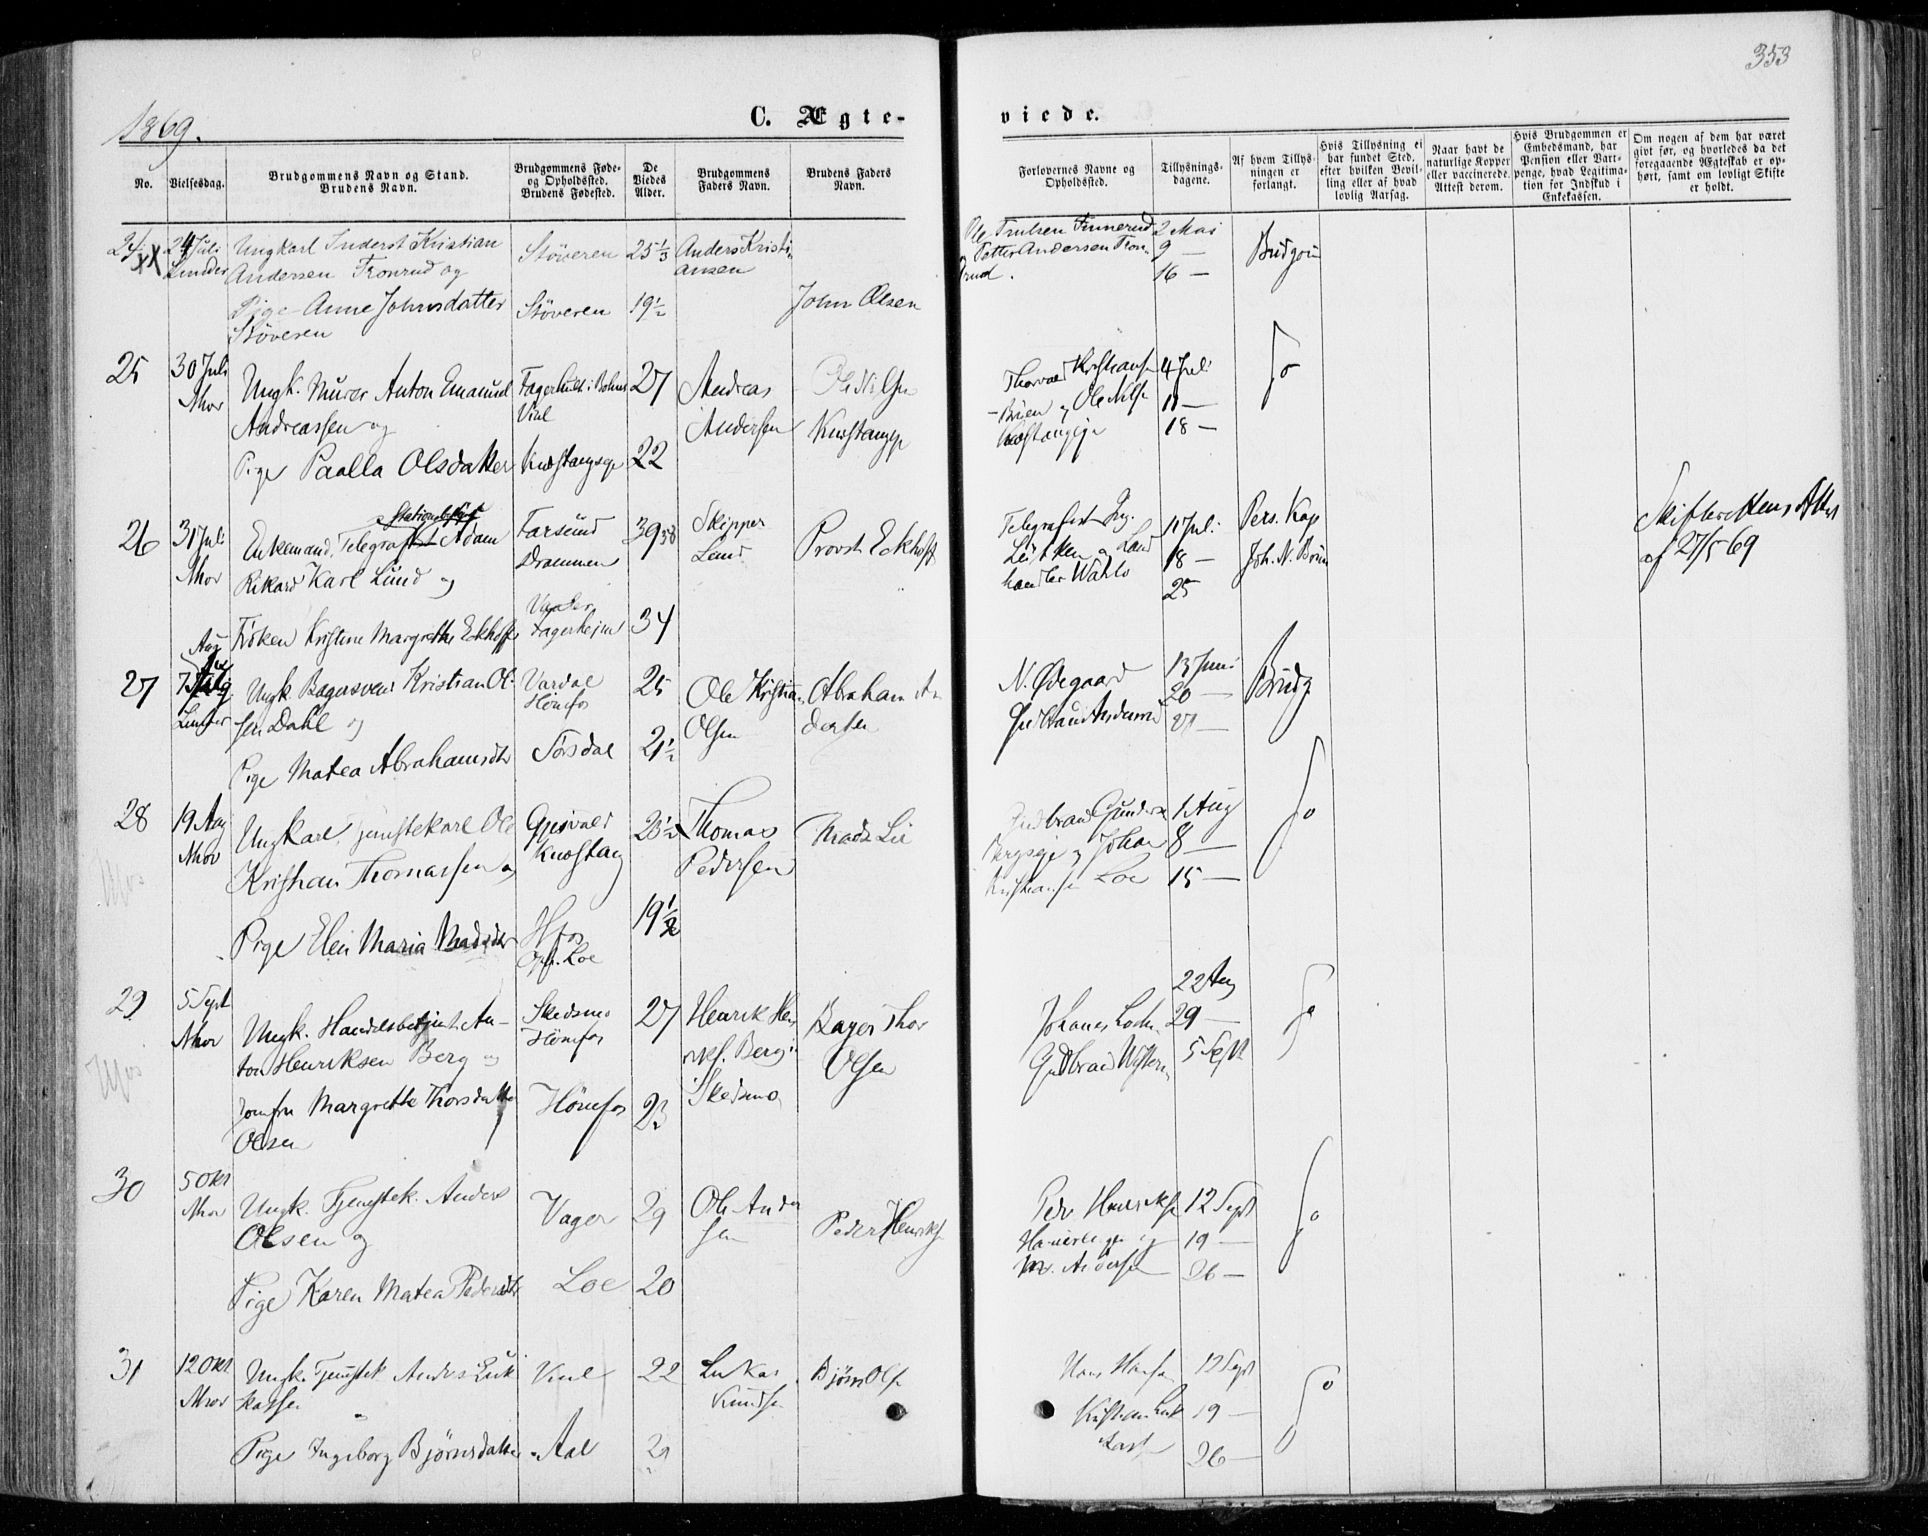 353
1869.
C. Ægte-
viede.
No.
Vielsesdag.
Brudgommens Navn og Stand.
Brudens Navn.
Brudgommens Føde-
og Opholdssted.
Brudens Fødested.
De
Viedes
Alder.
Brudgommens
Faders Navn.
Brudens Faders
Navn.
Forlovernes Navne og
Opholdssted.
Tillysnings-
dagene.
Af hvem Tillys-
ningen er
forlangt.
Hvis Tillysning ei
har fundet Sted,
efter hvilken Bevil-
ling eller af hvad
lovlig Aarsag.
Naar havt de
naturlige Kopper
eller vaccinerede.
Attest derom.
Hvis Brudgommen er
Embedsmand, har
Pension eller Vart-
penge, hvad Legitima-
tion for Indskud i
Enkekassen.
Om nogen af dem har været
givt før, og hvorledes da det
foregaaende Ægteskab er op-
hørt, samt om lovligt Skifte
er holdt.
24
24 Juli
Lunder
Ungkarl Inderst Kristian
Andersen Fronrud og
Pige Anne Johnsdatter
Støveren
Støveren
Støveren
25 1/3
19 1/2
Anders Kristi-
ansen
John Olsen
Ole Trulsen Finnerud
Petter Andersen Fron-
rud.
2 Mai
9 —
16 —
Brudgom
25
30 Juli
Nhov
Ungk. Murer Anton Emanuel
Andreassen og
Pige Paalla Olsdatter
Fagerhult i Bohus
Viul
Knestangeje
27
22
Andreas
Andersen
Ole Nilsen
Thorvald Kristians
Ole Nils
4 Juli
11 —
18 —
do
26
31 Juli
Nhov
Stationsbest
Enkemand, Telegrafist Adam
Rikard Karl Lund og
Frøken Kristine Margrethe Eckhoff
Farsund
Drammen
Fagerheim
39
34
Skipper
Lund
Provst Eckhoff
Telegrafist
Lütken og Land
handler
11 Juli
18 —
25
Pers. Kap
Joh. N. Brun
Skifterettens Attest
af 27/5 69
27
7 Aug
Lunder
Ungk. Bagersvend Kristian Ol-
sen Dahl og
Pige Matea Abrahamsdtr
Vardal
Hönefos
Sørsdal
25
21 1/2
Ole Kristian
Olsen
Abraham An
dersen
N. Ødegaard
Gudbrand Andersen
13 Juni
20 —
27 —
Brudg
28
19 Aug
Nhov
Ungkarl, Tjenestekarl Ole
Kristian Thomassen og
Pige Elen Maria Madsdtr
Gjesvald
Knestang
Hfos
Oph. Loe
23 1/2
19 1/2
Thomas
Pedersen
Mads Lie
Gudbrand Gunders
Bergseje og Johan
Kristiansen Loe
1 Aug
8 —
15 —
do
29
5 Sept
Nhov
Ungk. Handelsbetjent An-
ton Henriksen Berg og
Jomfru Margrethe Thorsdatter
Olsen
Skedsmo
Hönefos
Hönefos
27
23
Henrik Hen
riks. Berg
Skedsmo
Bager Thor
Olsen
Johannes
Gudbrand
22 Aug
29 —
5 Sept
do
30
5 Okt
Nhov
Ungk. Tjenestek. Anders
Olsen og
Pige Karen Matea Pedersdtr
Vager
Loe
29
20
Ole Ander
sen
Peder Henriks
Peder Henriks
12 Sept
19 —
26 —
do
31
12 Okt
Nhov
Ungk. Tjenestek Anders Luk
kassen
Pige Ingeborg Bjørnsdatter
Viul
Aal
22
Lukas
Knudsen
Bjørn Ols
Hans Hansen
Kristian
12 Sept
19 —
26 —
do